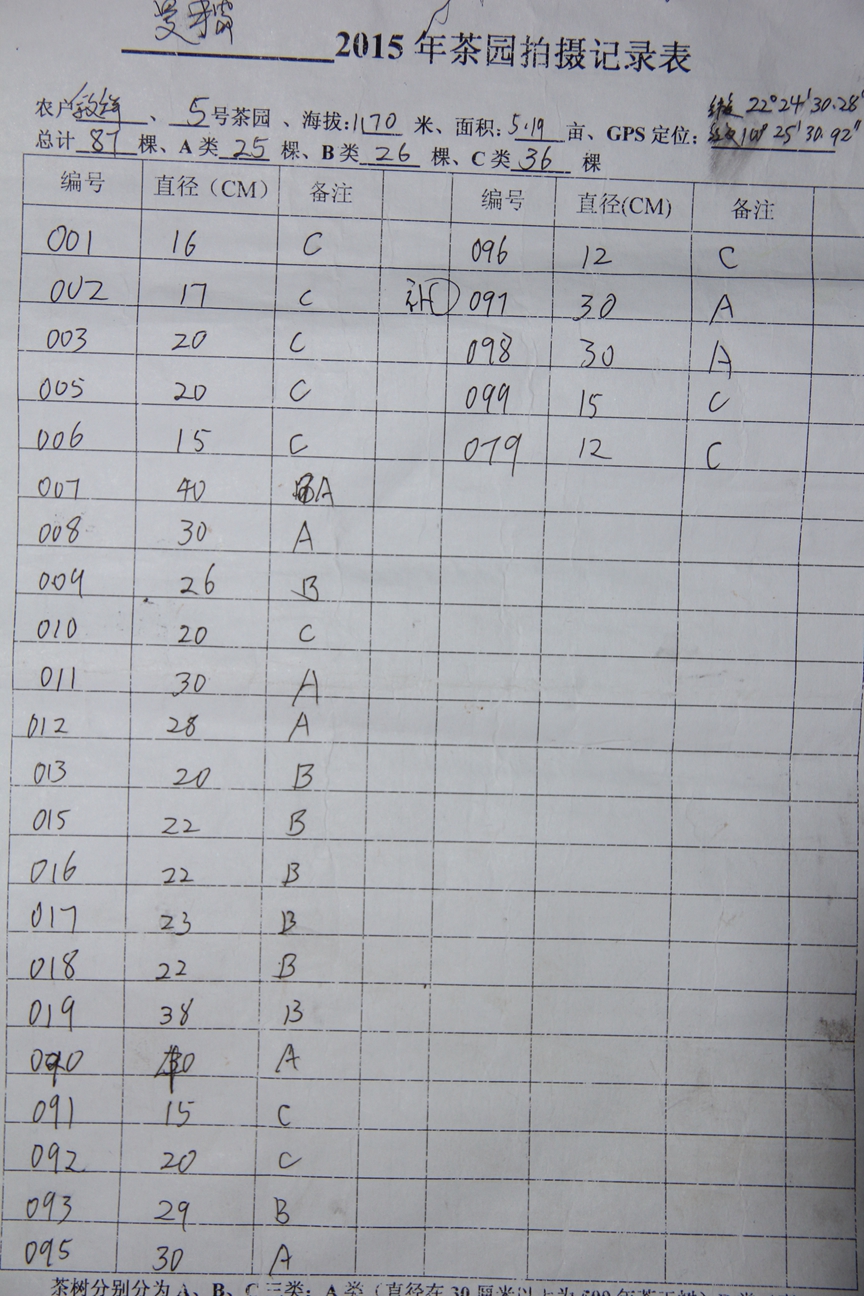 2015年茶园拍摄记录表
农户 、5号茶园、海拔:1170米、面积:5.19亩、GPS定位: 22°24'30.28"
总计87棵、A类25棵、B类26棵、C类36棵 25'30.92"
编号 直径（CM） 备注 编号 直径(CM) 备注
001 16 C 096 12 C
002 17 C 补 097 30 A
003 20 C 098 30 A
005 20 C 099 15 C
006 15 C 079 12 C
007 40 A
008 30 A
009 26 B
010 20 C
011 30 A
012 28 A
013 20 B
015 22 B
016 22 B
017 23 B
018 22 B
019 38 B
090 30 A
091 15 C
092 20 C
093 29 B
095 30 A
茶树分别分为A、B、C三类：A类（直径在30厘米以上为500年茶王树）